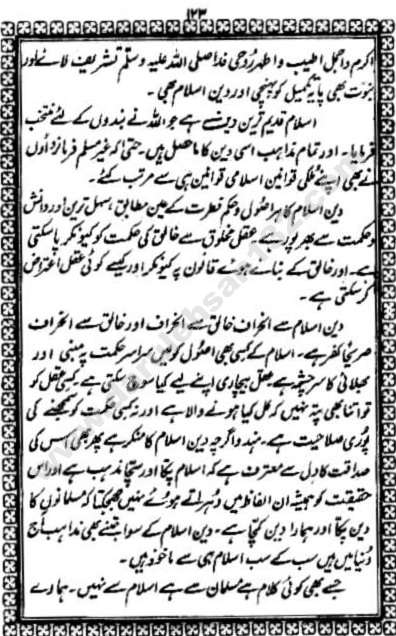 ۱۲۳
اکرم و اجمل اطیب و اطہر رُوحی فداصلی اللہ علیہ وسلّم تشریف لائے اور
نبوّت بھی پایۂ تکمیل کو پہنچی اور دین اسلام بھی۔
اسلام قدیم ترین دین ہے جو اللہ نے بندوں کے لئے منتخب
فرمایا۔ اور تمام مذاہب اسی دین کا ماحصل ہیں۔ حتیٰ کہ غیر مسلم فرمانرواؤں
نے بھی اپنے ملکی قوانین اسلامی قوانین ہی سے مرتب کئے۔
دین اسلام کا ہر اصُول و حکم فطرت کے عین مطابق، سہل ترین اور دانش
و حکمت سے بھرپور ہے۔ عقل مخلوق سے خالق کی حکمت کو کیونکر پا سکتی
ہے۔ اور خالق کے بنائے ہوئے قانون پہ کیونکر اور کیسے کوئی عقل اعتراض
کر سکتی ہے۔
دین اسلام سے انحراف خالق سے انحراف اور خالق سے انحراف
صریحًا کفر ہے۔ اسلام کے کسی بھی اصُول کو لیں سراسر حکمت پہ مبنی اور
بھلائی کا سرچشمہ ہے عقل بیچاری اپنے لیے کیا سوچ سکتی ہے کسی عقل کو
تو اتنا بھی پتہ نہیں کہ کل کیا ہونے والا ہے اور نہ کسی حکمت کو سمجھنے کی
پُوری صلاحیت ہے۔ ہندو اگرچہ دین اسلام کا منکر ہے پھر بھی اس کی
صداقت کا دل سے معترف ہے کہ اسلام پکّا اور سچّا مذہب ہے اور اس
حقیقت کو ہمیشہ ان الفاظ میں دُہراتے ہوئے نہیں جھجکتا کہ مسلمانوں کا
دین پکّا اور ہمارا دین کچّا ہے۔ دین اسلام کے سوا جتنے بھی مذاہب آج
دُنیا میں ہیں سب کے سب اسلام ہی سے ماخوذ ہیں۔
جسے بھی کوئی کلام ہے مُسلمان سے ہے اسلام سے نہیں۔ ہمارے